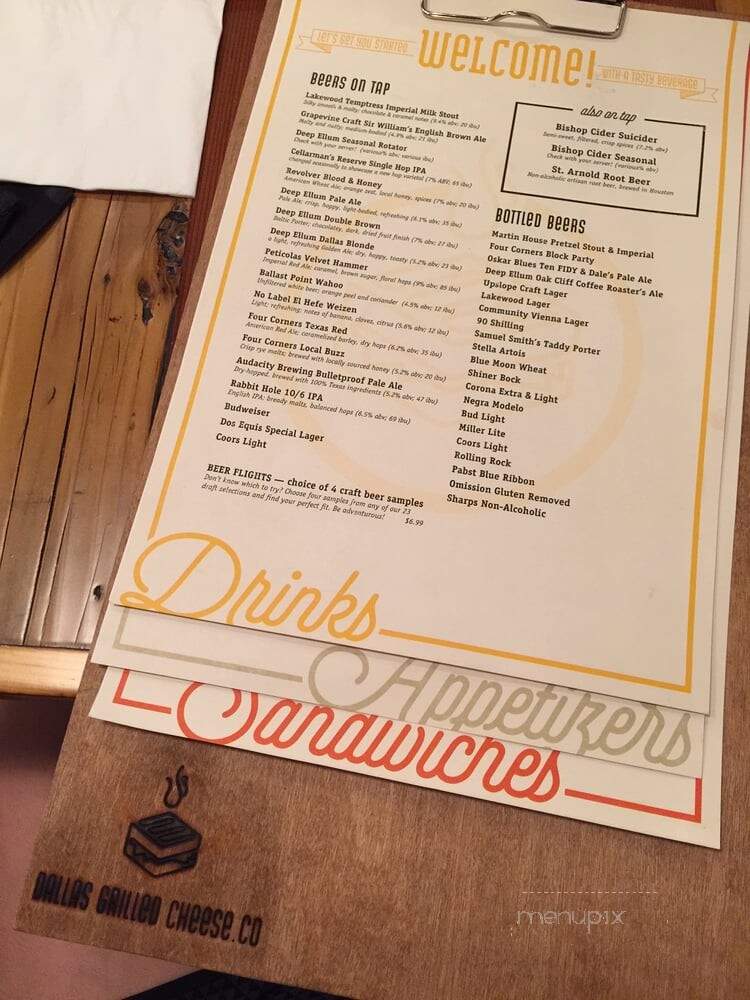 LET'S GET YOU STARTED
WELCOME!
WITH A TASTY BEVERAGE
BEERS ON TAP
Lakewood Temptress Imperial Milk Stout
Silky smooth & malty; chocolate & caramel notes (9.4% abv; 20 ibu)
Grapevine Craft Sir William's English Brown Ale
Malty and nutty; medium-bodied (4.9% abv; 21 ibu)
Deep Ellum Seasonal Rotator
Check with your server! (various% abv; various ibu)
Cellarman's Reserve Single Hop IPA
changed seasonally to showcase a new hop varietal (7% ABV; 65 ibu)
Revolver Blood & Honey
American Wheat Ale; orange zest, local honey, spices (7% abv; 20 ibu)
Deep Ellum Pale Ale
Pale Ale; crisp, hoppy, light-bodied, refreshing (6.1% abv; 35 ibu)
Deep Ellum Double Brown
Baltic Porter; chocolatey, dark, dried fruit finish (7% abv; 27 ibu)
Deep Ellum Dallas Blonde
a light, refreshing Golden Ale; dry, hoppy, toasty (5.2% abv; 23 ibu)
Peticolas Velvet Hammer
Imperial Red Ale; caramel, brown sugar, floral hops (9% abv; 85 ibu)
Ballast Point Wahoo
Unfiltered white beer; orange peel and coriander (4.5% abv; 12 ibu)
No Label El Hefe Weizen
Light; refreshing; notes of banana, cloves, citrus (5.6% abv; 12 ibu)
Four Corners Texas Red
American Red Ale; caramelized barley, dry hops (6.2% abv; 35 ibu)
Four Corners Local Buzz
Crisp rye malts; brewed with locally sourced honey (5.2% abv; 20 ibu)
Audacity Brewing Bulletproof Pale Ale
Dry-hopped, brewed with 100% Texas ingredients (5.2% abv; 47 ibu)
Rabbit Hole 10/6 IPA
English IPA; bready malts, balanced hops (6.5% abv; 69 ibu)
Budweiser
Dos Equis Special Lager
Coors Light
BEER FLIGHTS — choice of 4 craft beer samples
Don't know which to try? Choose four samples from any of our 23
draft selections and find your perfect fit. Be adventurous! $6.99
also on tap
Bishop Cider Suicider
Semi-sweet, filtered, crisp spices (7.2% abv)
Bishop Cider Seasonal
Check with your server! (various% abv)
St. Arnold Root Beer
Non-alcoholic artisan root beer, brewed in Houston
BOTTLED BEERS
Martin House Pretzel Stout & Imperial
Four Corners Block Party
Oskar Blues Ten FIDY & Dale's Pale Ale
Deep Ellum Oak Cliff Coffee Roaster's Ale
Upslope Craft Lager
Lakewood Lager
Community Vienna Lager
90 Shilling
Samuel Smith's Taddy Porter
Stella Artois
Blue Moon Wheat
Shiner Bock
Corona Extra & Light
Negra Modelo
Bud Light
Miller Lite
Coors Light
Rolling Rock
Pabst Blue Ribbon
Omission Gluten Removed
Sharps Non-Alcoholic
Drinks
Appetizers
Sandwiches
DALLAS GRILLED CHEESE.CO
menupix